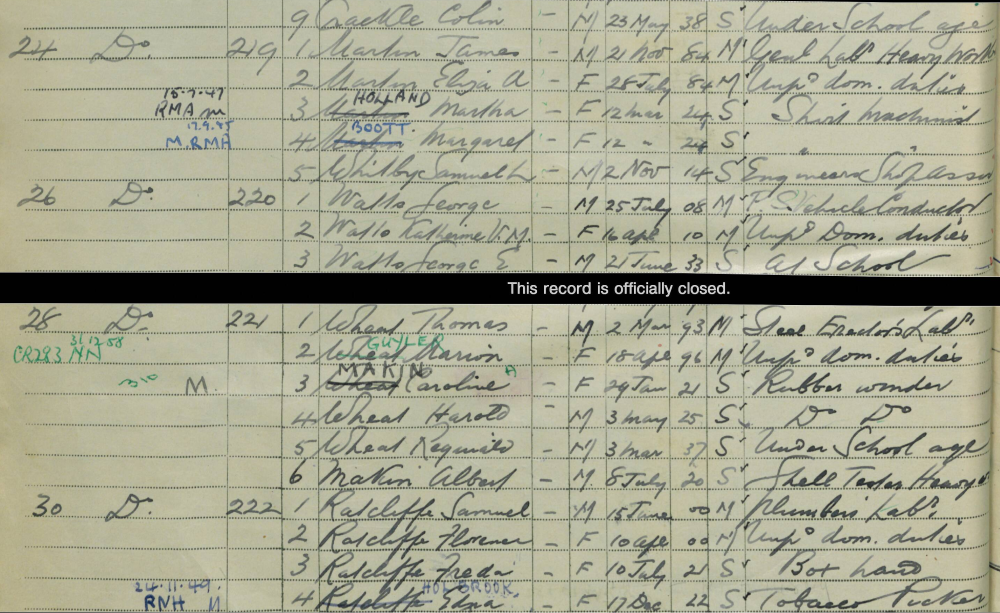 9 Crackle Colin – M 23 May 38 S Under School age
24 Do 219 1 Martin James – M 21 Nov 84 M Genl Labr Heavy Work
2 Martin Eliza A – F 28 July 84 M Unpd dom. duties
15.7.47 HOLLAND
RMA m 3 Martin Martha – F 12 Mar 24 S Shirt machinist
12.9.45 BOOTT.
M. RMA 4 Martin Margaret – F 12 " 24 S "
5 Whitby Samuel L – M 2 Nov 14 S Engineers Shop
26 Do 220 1 Watts George – M 25 July 08 M P.S. Vehicle Conductor
2 Watts Katherine V.M. – F 16 Apl 10 M Unpd Dom. duties
3 Watts George E – M 21 June 33 S At School
This record is officially closed.
28 Do 221 1 Wheat Thomas – M 2 Mar 93 M Steel Erector's Labr
31.12.58 GUYLER
CR283 NN 2 Wheat Marion – F 18 Apl 96 M Unpd dom. duties
MAKIN
M. 3 Wheat Caroline – F 29 Jan 21 S Rubber winder
4 Wheat Harold – M 3 May 25 S Do Do
5 Wheat Reginald – M 3 Mar 37 S Under School age
6 Makin Albert – M. 8 July 20 S Shell Tester Heavy
30 Do 222 1 Ratcliffe Samuel – M 15 June 00 M Plumbers Labr
2 Ratcliffe Florence – F 10 Apl 00 M Unpd dom. duties
3 Ratcliffe Freda – F 10 July 21 S Box hand
24.11.49. HOLBROOK.
RNH M 4 Ratcliffe Edna – F 17 Dec 22 S Tobacco Picker